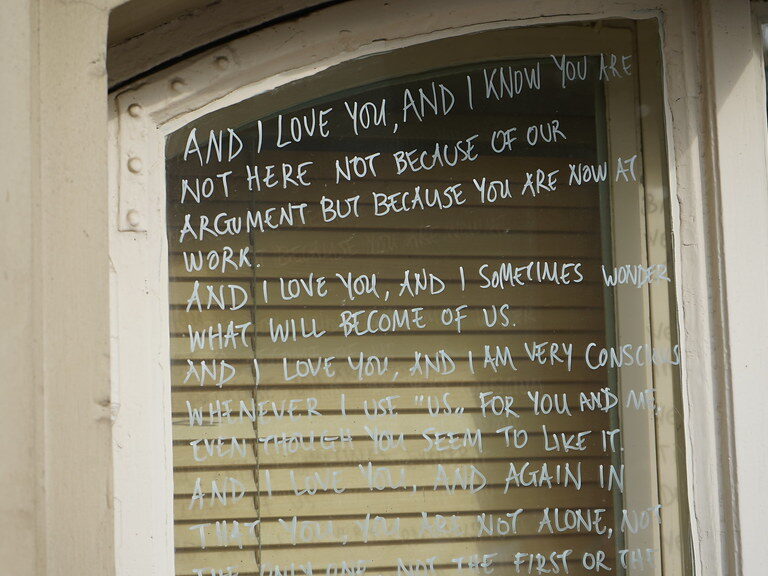 AND I LOVE YOU, AND I KNOW YOU ARE
NOT HERE NOT BECAUSE OF OUR
ARGUMENT BUT BECAUSE YOU ARE NOW AT
WORK.
AND I LOVE YOU, AND I SOMETIMES WONDER
WHAT WILL BECOME OF US.
AND I LOVE YOU, AND I AM VERY CONSCIOUS
WHENEVER I USE "US„ FOR YOU AND ME,
EVEN THOUGH YOU SEEM TO LIKE IT.
AND I LOVE YOU, AND AGAIN IN
THAT YOU, YOU ARE NOT ALONE, NOT
THE ONLY ONE, NOT THE FIRST OR THE